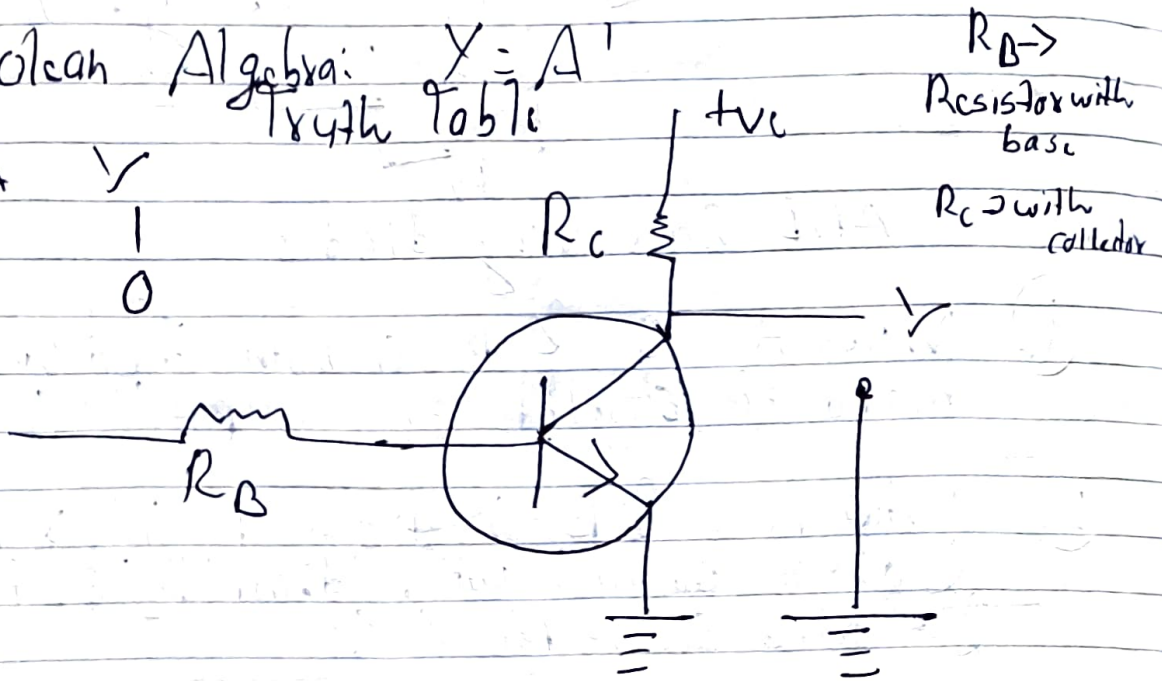 olean Algebra: Y = A'
Truth Table
Y
1
0
+Vc
RB →
Resistor with
base
RC → with
collector
RC
Y
RB